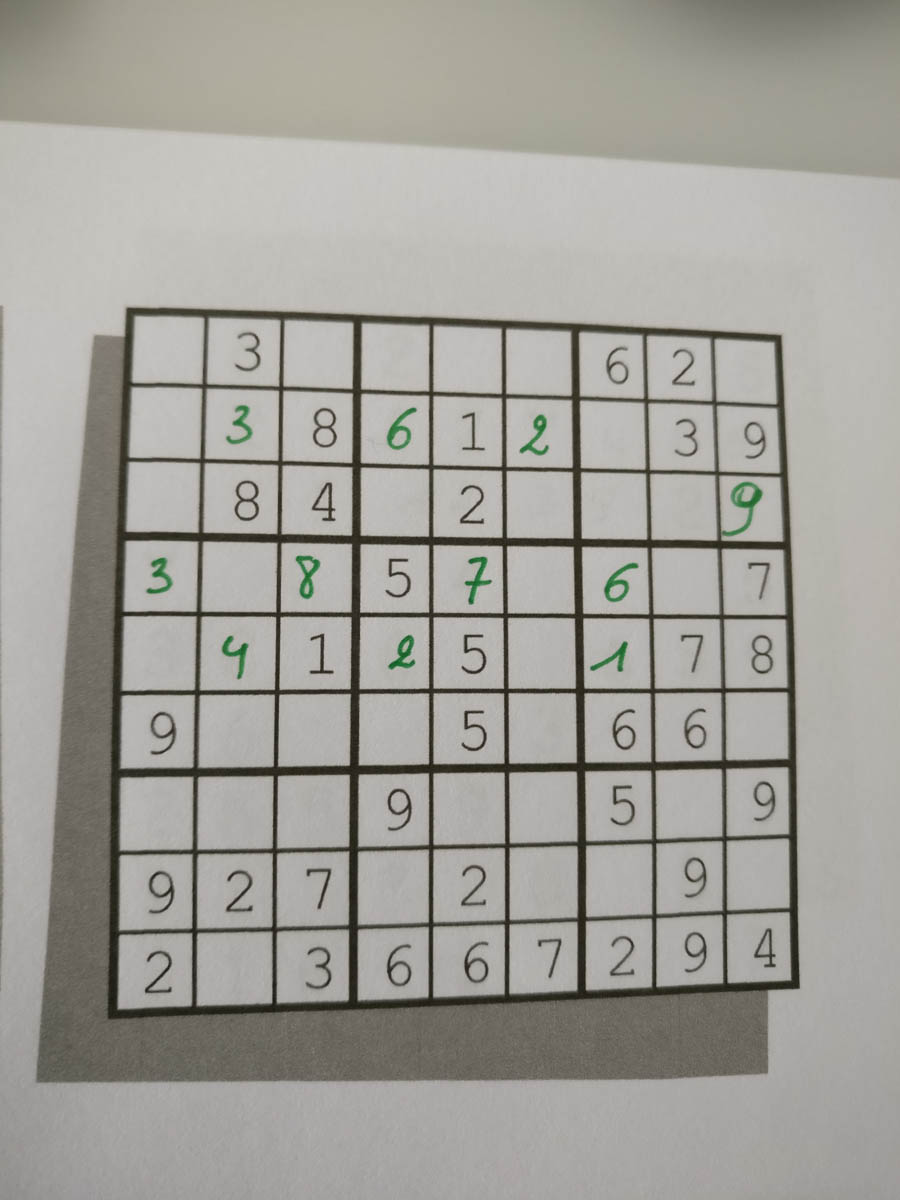 3 6 2
3 8 6 1 2 3 9
8 4 2 9
3 8 5 7 6 7
4 1 2 5 1 7 8
9 5 6 6
9 5 9
9 2 7 2 9
2 3 6 6 7 2 9 4